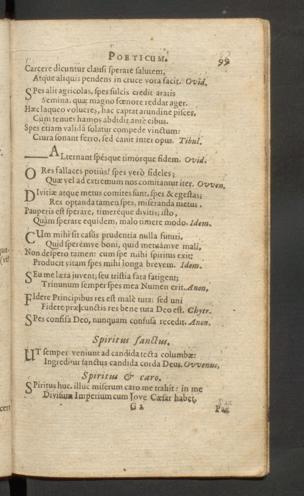 POETICUM. 99
Carcere dicuntur clausi sperare salutem,
Atque aliquis pendens in cruce vota facit. Ovid.
SPes alit agricolas, spes sulcis credit aratis
Semina, quæ magno fœnore reddat ager.
Hæc laqueo volucres, hæc captat arundine pisces,
Cum tenues hamos abdidit ante cibus.
Spes etiam validâ solatur compede vinctum:
Crura sonant ferro, sed canit inter opus. Tibul.
ALternant spésque timórque fidem. Ovid.
O Res fallaces potius! spes verò fideles;
Quæ vel ad extremum nos comitantur iter. Ovven.
DIvitiæ atque metus comites sunt, spes & egestas:
Res optanda tamen spes, miseranda metus.
Pauperis est sperare, timeréque divitis; isto,
Quàm sperare equidem, malo timere modo. Idem.
CUm mihi sit casus prudentia nulla futuri,
Quid sperémve boni, quid metuámve mali,
Non despero tamen: cum spe mihi spiritus exit:
Producit vitam spes mihi longa brevem. Idem.
SEu me læta juvent, seu tristia fata fatigent;
Trinunum semper spes mea Numen erit. Anon.
FIdere Principibus res est malè tuta: sed uni
Fidere præ cunctis res bene tuta Deo est. Chytr.
SPes confisa Deo, nunquam confusa recedit. Anon.
Spiritus sanctus.
UT semper veniunt ad candida tecta columbæ:
Ingreditur sanctus candida corda Deus. Ovvenus.
Spiritus & caro.
SPiritus huc, illuc miserum caro me trahit: in me
Divisum Imperium cum Jove Cæsar habet.
G 2